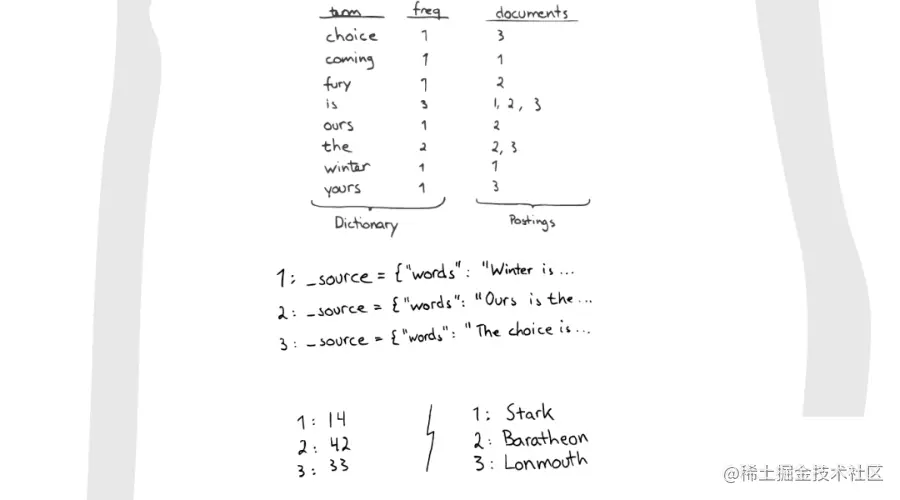 term freq documents
choice 1 3
coming 1 1
fury 1 2
is 3 1, 2, 3
ours 1 2
the 2 2, 3
winter 1 1
yours 1 3
Dictionary Postings
1: _source = {"words": "Winter is ...
2: _source = {"words": "Ours is the ...
3: _source = {"words": "The choice is ...
1: 14 1: Stark
2: 42 2: Baratheon
3: 33 3: Lonmouth
@稀土掘金技术社区